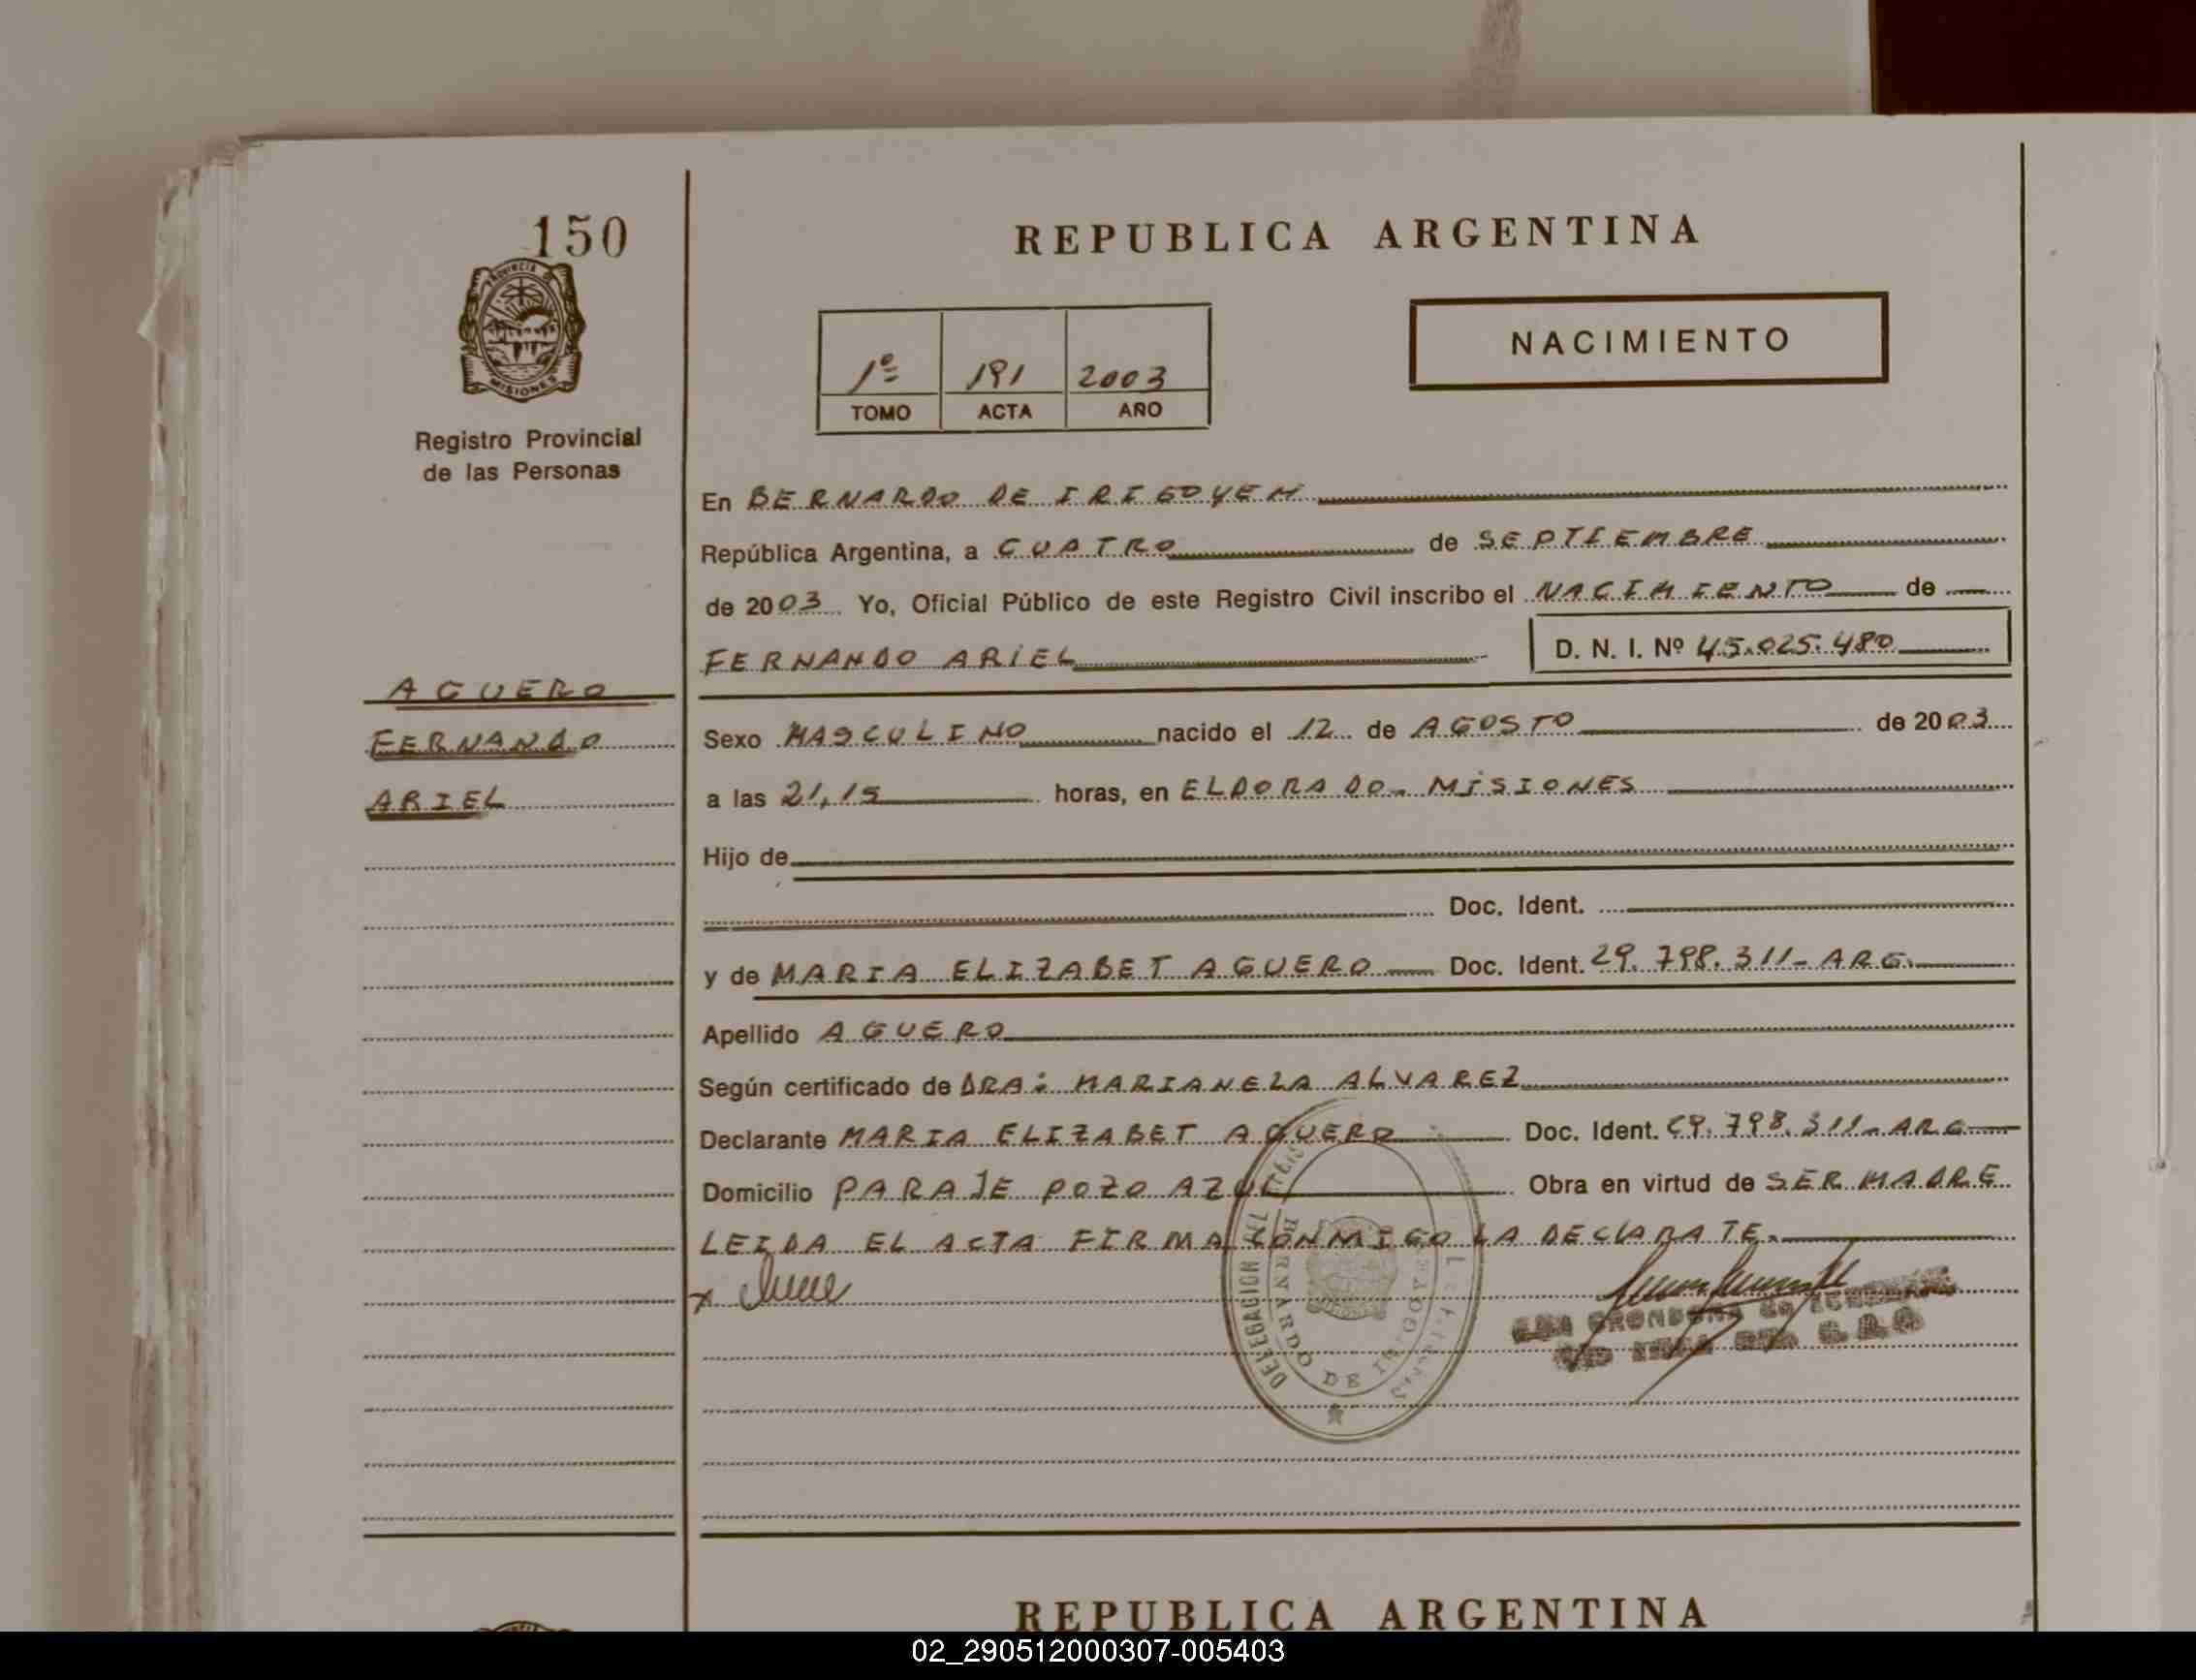 150
PROVINCIA DE
MISIONES
Registro Provincial
de las Personas
REPUBLICA ARGENTINA
NACIMIENTO
1º 191 2003
TOMO ACTA AÑO
En BERNARDO DE IRIGOYEN
República Argentina, a CUATRO de SEPTIEMBRE
de 2003 Yo, Oficial Público de este Registro Civil inscribo el NACIMIENTO de
FERNANDO ARIEL D. N. I. Nº 45.025.480
AGUERO
FERNANDO
ARIEL
Sexo MASCULINO nacido el 12 de AGOSTO de 2003
a las 21,15 horas, en ELDORADO - MISIONES
Hijo de
Doc. Ident.
y de MARIA ELIZABET AGUERO Doc. Ident. 29.798.311- ARG.
Apellido AGUERO
Según certificado de DRA: MARIANELA ALVAREZ
Declarante MARIA ELIZABET AGUERO Doc. Ident. 29.798.311- ARG
Domicilio PARAJE POZO AZUL Obra en virtud de SER MADRE
LEIDA EL ACTA FIRMA CONMIGO LA DECLARATE.
x
DELEGACION DEL
BERNARDO DE IRIGOYEN
REPUBLICA ARGENTINA
02_290512000307-005403